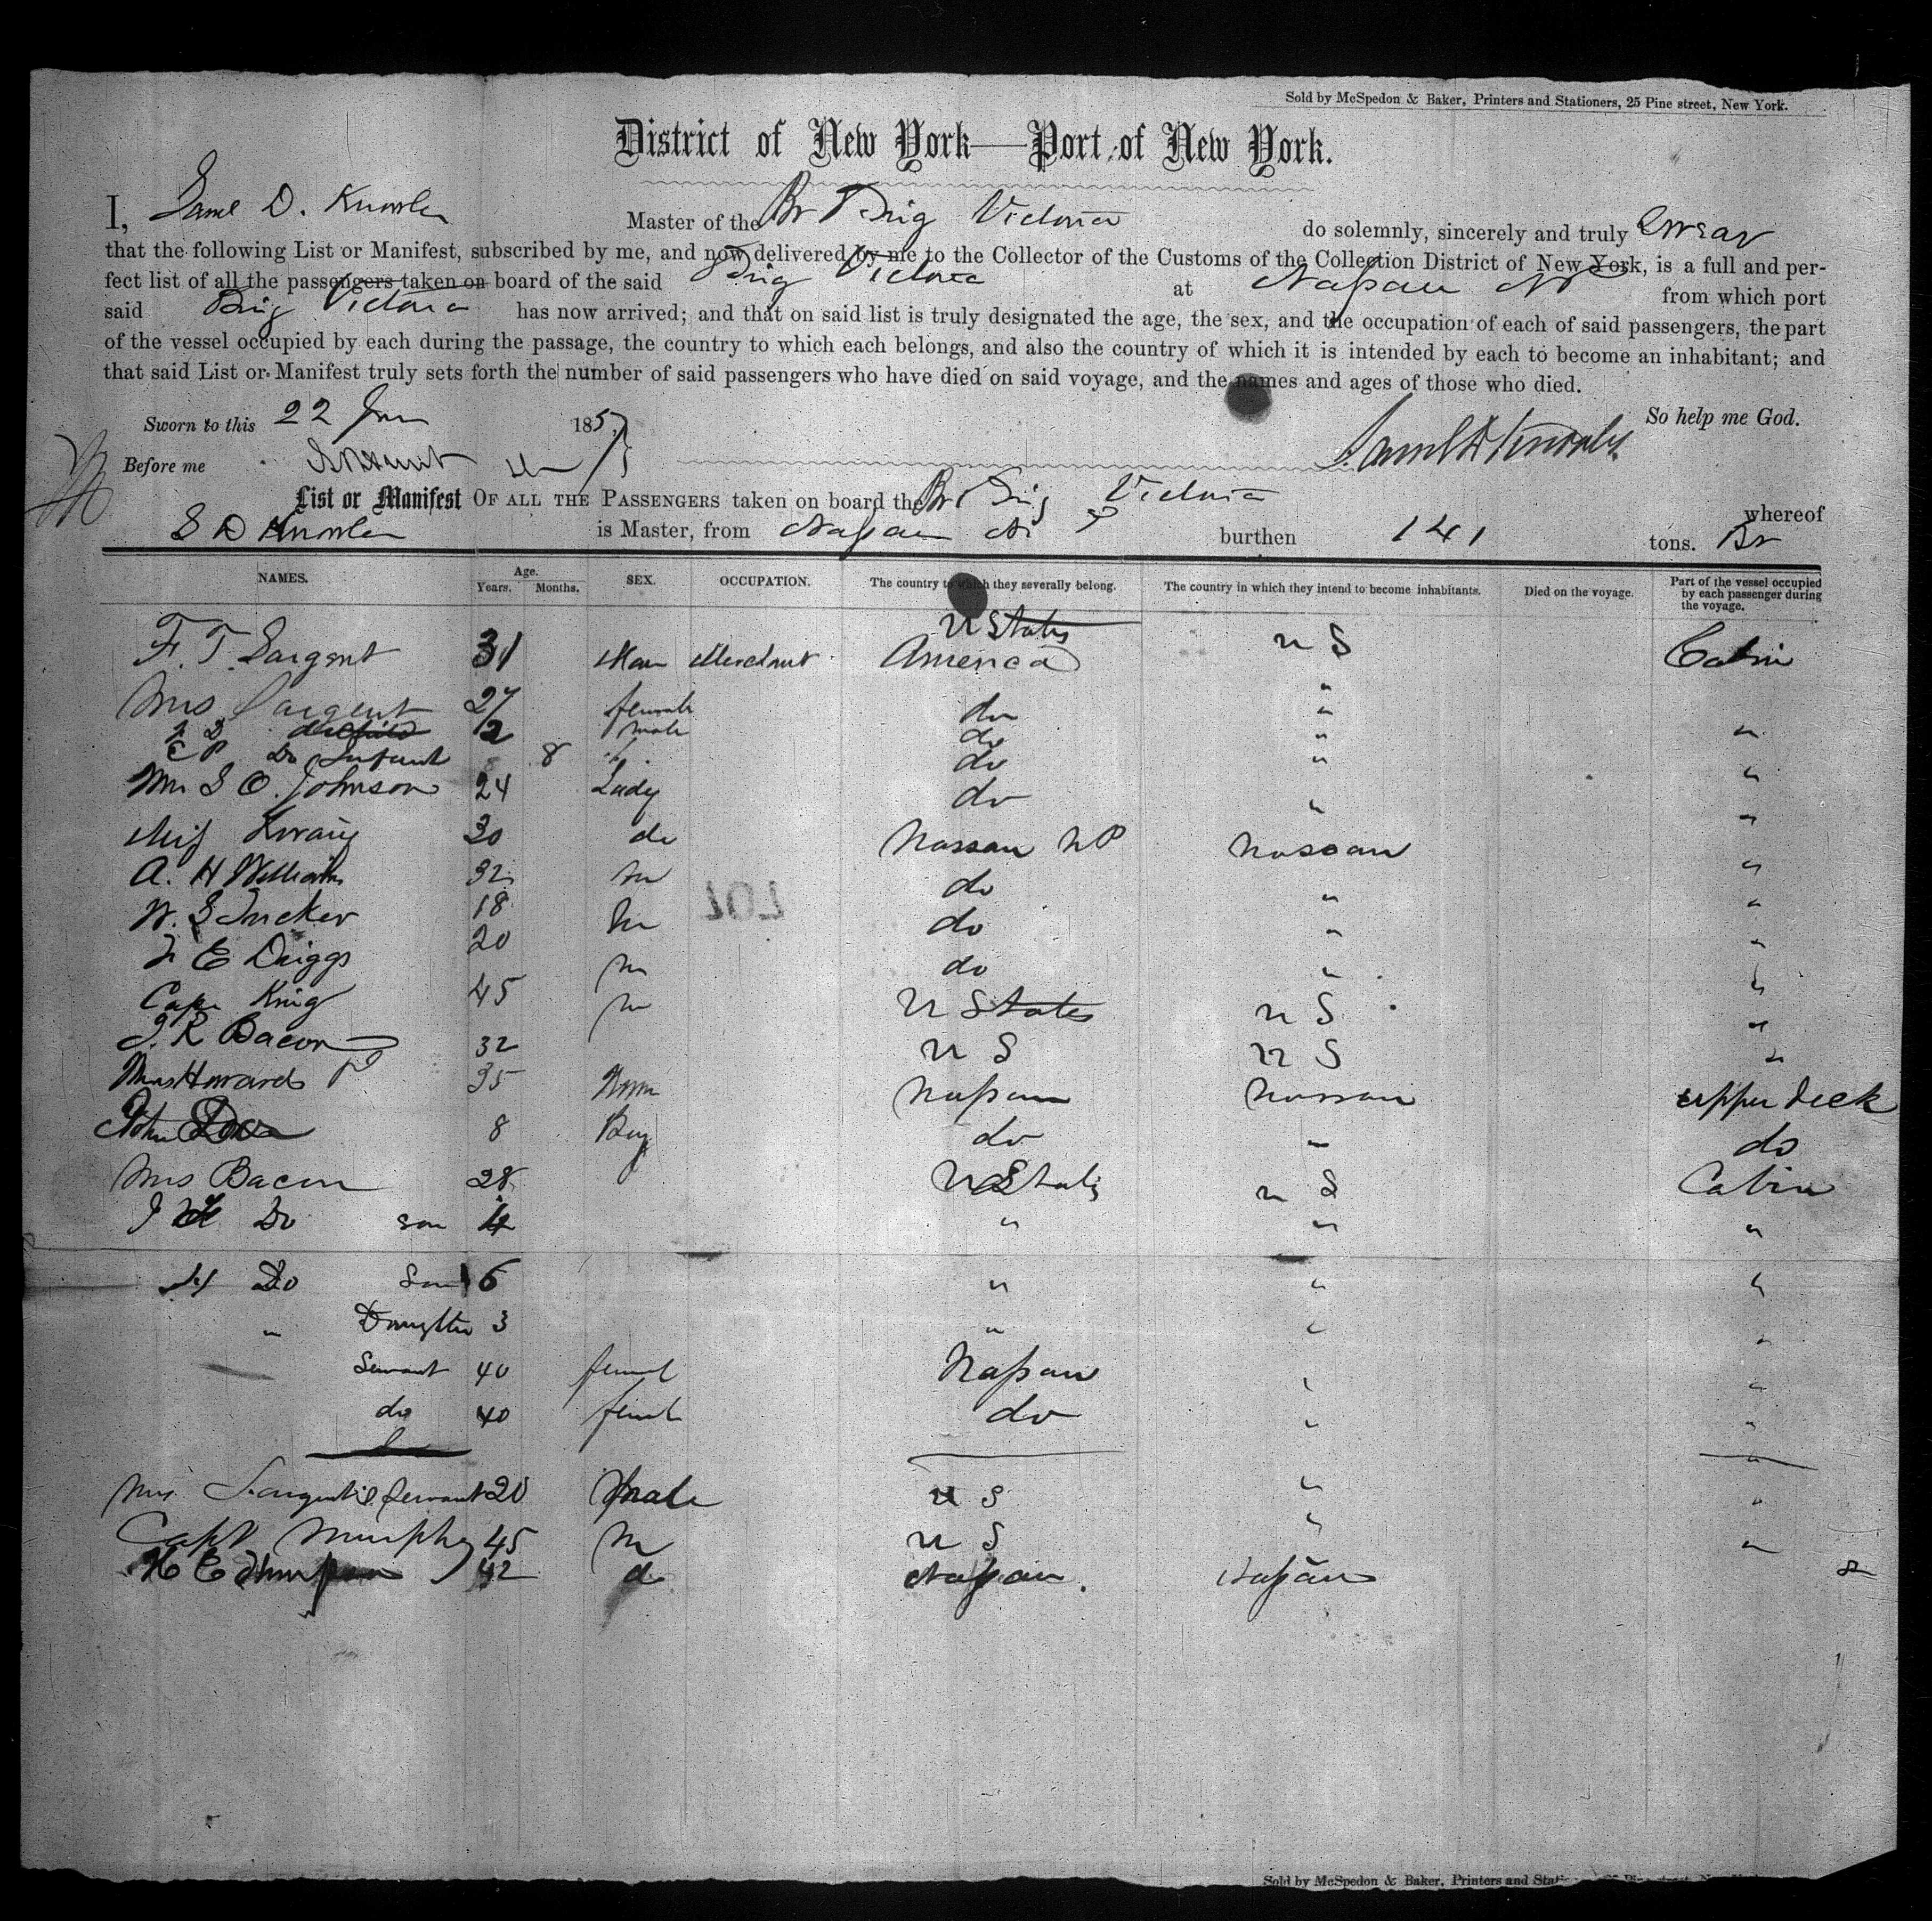 Sold by McSpedon & Baker, Printers and Stationers, 25 Pine street, New York.
District of New York—Port of New York.
I, Saml D. Knowles Master of the Br Brig Victoria do solemnly, sincerely and truly Swear
that the following List or Manifest, subscribed by me, and now delivered by me to the Collector of the Customs of the Collection District of New York, is a full and per-
fect list of all the passengers taken on board of the said Brig Victoria at Nassau NP from which port
said Brig Victoria has now arrived; and that on said list is truly designated the age, the sex, and the occupation of each of said passengers, the part
of the vessel occupied by each during the passage, the country to which each belongs, and also the country of which it is intended by each to become an inhabitant; and
that said List or Manifest truly sets forth the number of said passengers who have died on said voyage, and the names and ages of those who died.
So help me God.
Sworn to this 22 1857
Before me
Saml D Knowles
List or Manifest OF ALL THE PASSENGERS taken on board the Br Brig Victoria whereof
S D Knowles is Master, from Nassau N P burthen 141 tons. Br
NAMES. Age. Years. Months. SEX. OCCUPATION. The country to which they severally belong. The country in which they intend to become inhabitants. Died on the voyage. Part of the vessel occupied by each passenger during the voyage.
U States
F. T. Sargent 31 Man Merchant America U S Cabin
Mrs Sargent 27 female do "
2 male do " "
C P Do Infant 8 do " "
S O. Johnson 24 Lady do " "
Miss 30 do Nassau NP Nassau "
A. H Williams 32 m do " "
W. S Tucker 18 m do " "
E Driggs 20 m do " "
Capt King 45 m U States U S "
J. R Bacon 32 U S U S "
Mrs Howard 35 Nassau Nassau upper deck
John 8 Boy do " do
Mrs Bacon 28 U States U S Cabin
Do son 4 " " "
Do Son 6 " " "
" Daughter 3 " " "
Servant 40 femal Nassau " "
do 40 femal do " "
Mrs Sargent's servant 20 U S " "
Capt Murphy 45 m U S " "
H E 42 do Nassau. Nassau
Sold by McSpedon & Baker, Printers and